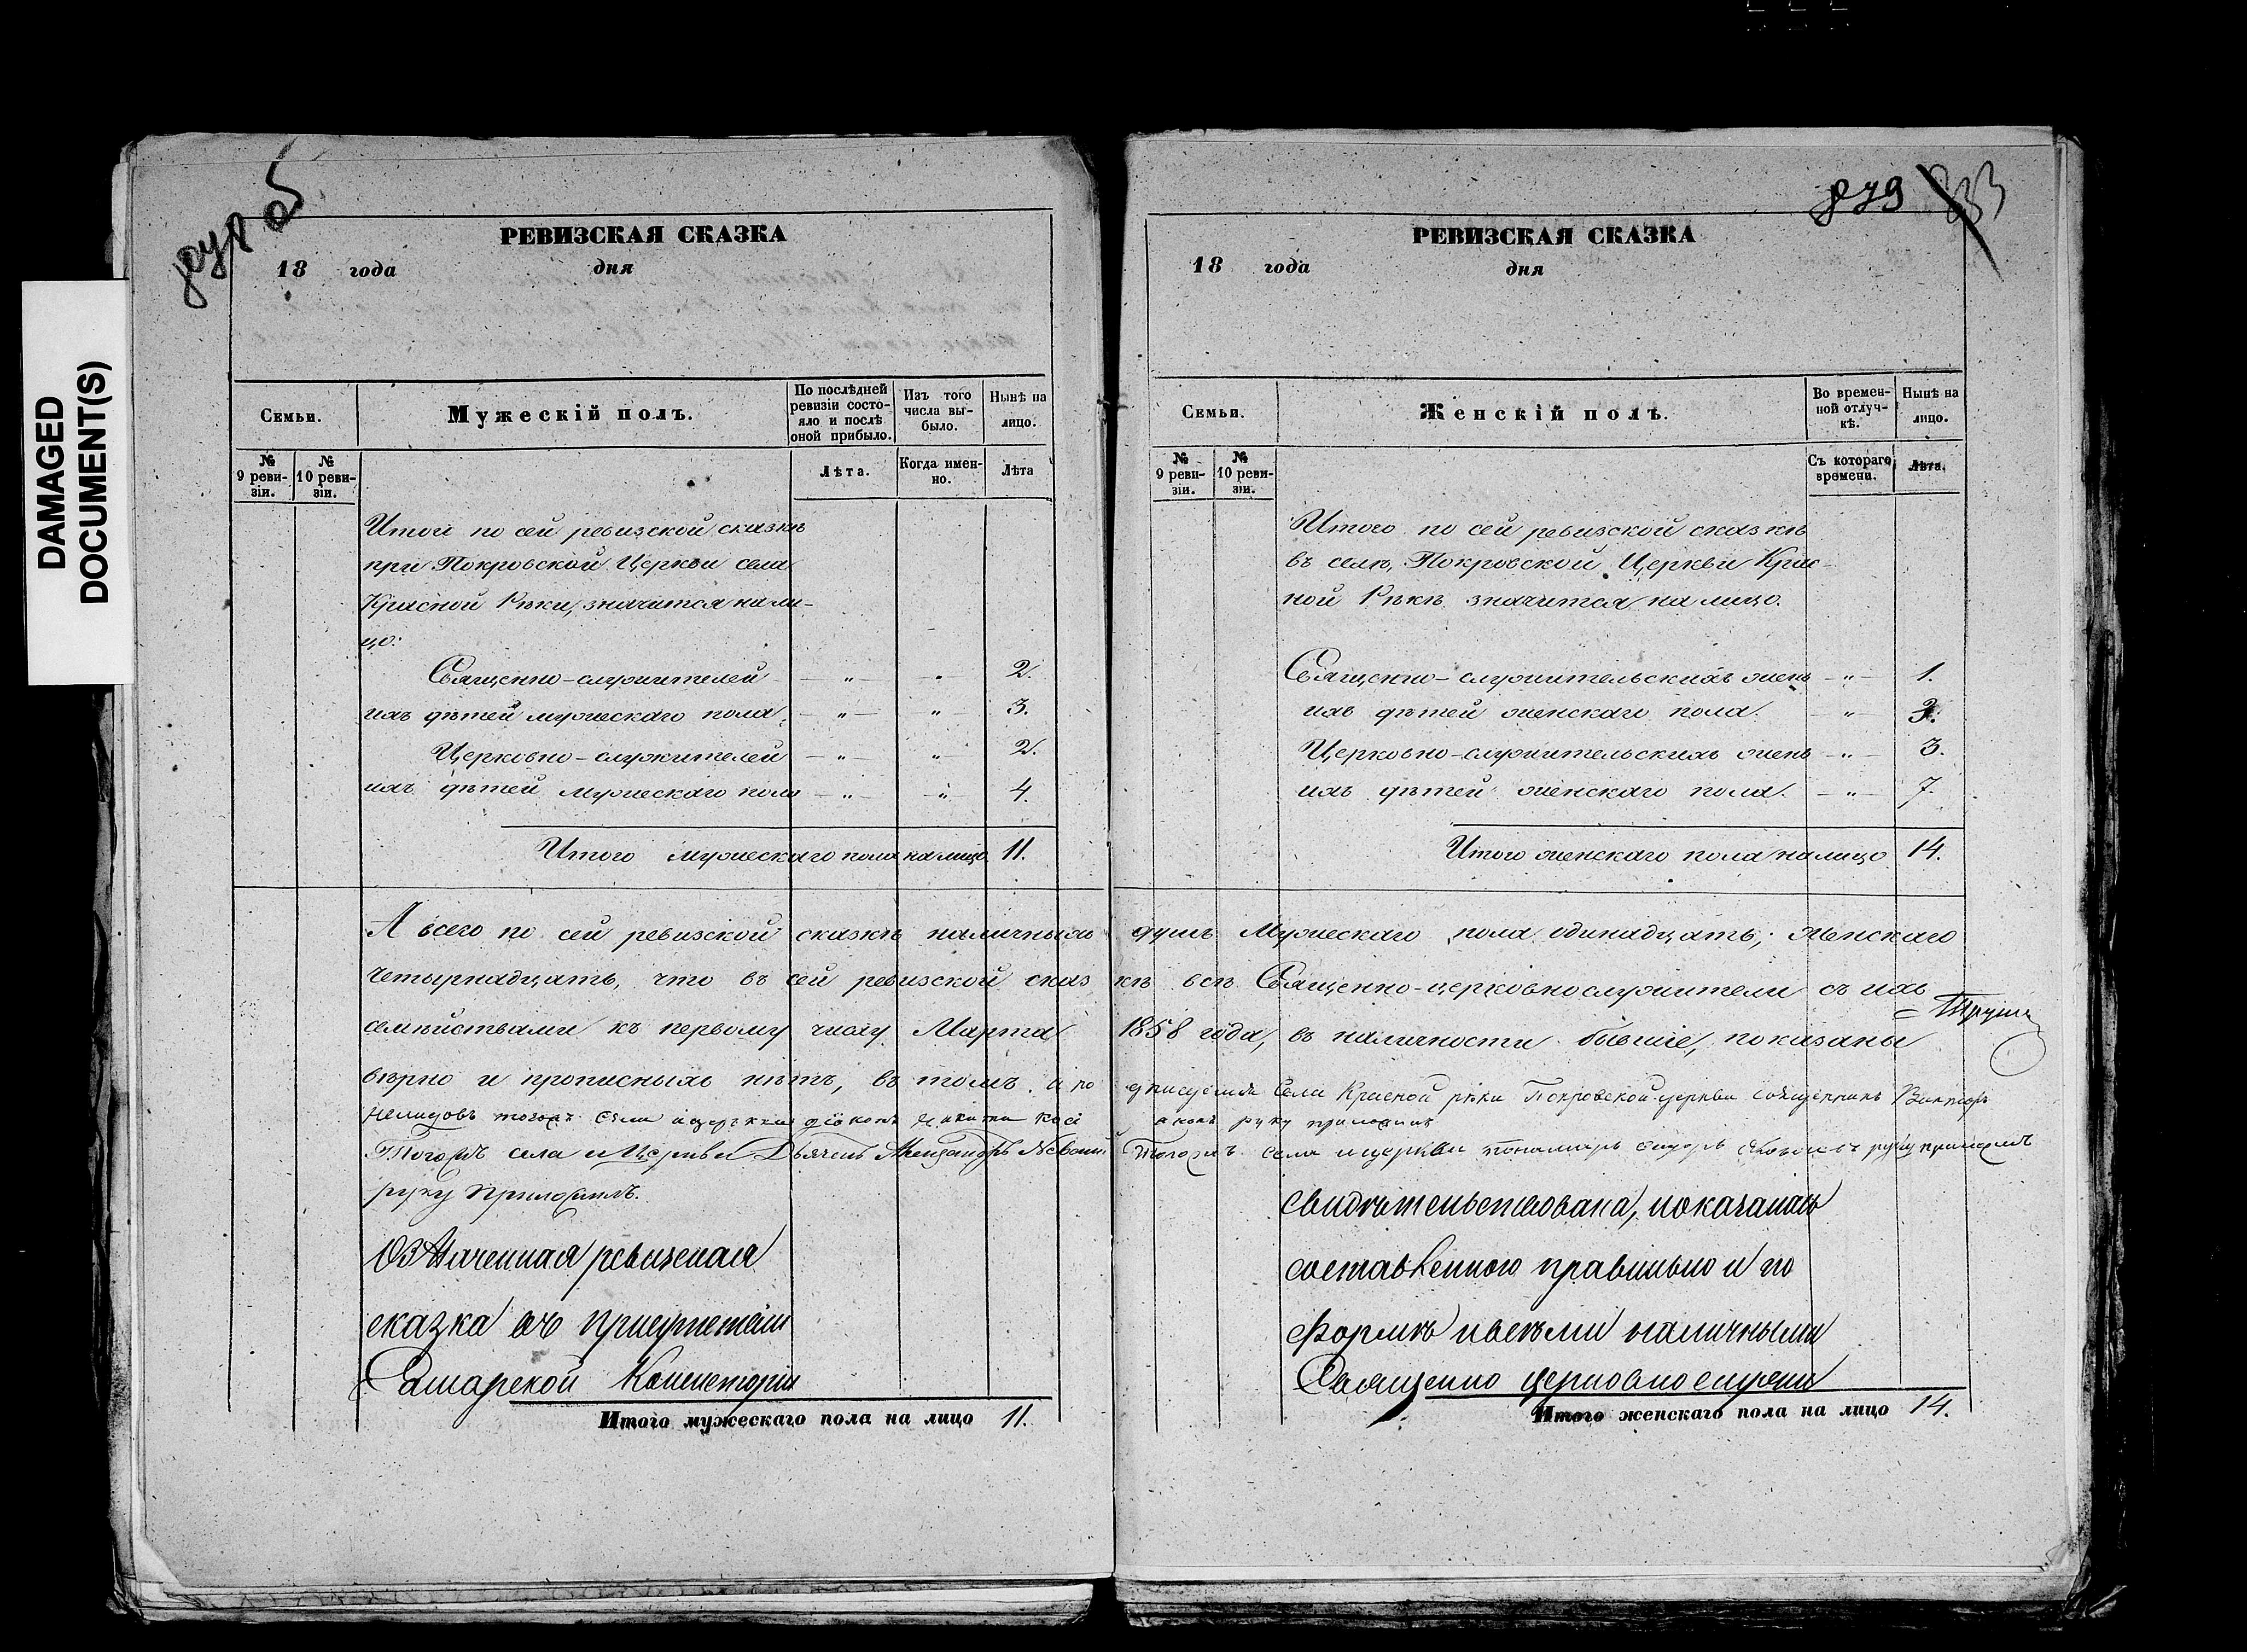 DAMAGED
DOCUMENT(S)
РЕВИЗСКАЯ СКАЗКА
18 года дня
Семьи.
Мужескій полъ.
По послѣдней ревизіи состояло и послѣ оной прибыло.
Изъ того числа выбыло.
Нынѣ на лицо.
№ 9 ревизіи.
№ 10 ревизіи.
Лѣта.
Когда именно.
Лѣта
Итого по сей ревизской сказкѣ
при Покровской Церкви села
Красной Рѣки, значится нали-
цо:
Священно-служителей — „ — „ 2.
ихъ дѣтей мужескаго пола, — „ — „ 3.
Церковно-служителей — „ — „ 2.
ихъ дѣтей мужескаго пола — „ — „ 4.
Итого мужескаго пола налицо 11.
879 833
РЕВИЗСКАЯ СКАЗКА
18 года дня
Семьи.
Женскій полъ.
Во временной отлучкѣ.
Нынѣ на лицо.
№ 9 ревизіи.
№ 10 ревизіи.
Съ котораго времени.
Лѣта.
Итого по сей ревизской сказкѣ
въ селѣ, Покровской Церкви Крас-
ной Рѣкѣ значится на лицо.
Священно-служительскихъ женъ — „ — 1.
ихъ дѣтей женскаго пола. — „ — 3.
Церковно-служительскихъ женъ — „ — 3.
ихъ дѣтей женскаго пола. — „ — 7.
Итого женскаго пола налицо 14.
А всего по сей ревизской сказкѣ наличныхъ душъ Мужескаго пола одинадцать; женскаго
четырнадцать, что въ сей ревизской сказкѣ всѣ Священно-церковнослужители съ ихъ
семѣйствами къ первому числу Марта 1858 года, въ наличности бывшіе, показаны
вѣрно и прописныхъ нѣтъ, въ томъ и подписуемся Села Красной рѣки Покровской церкви священникъ Викторъ
Немидовъ тогожъ села и церкви діаконъ руку приложилъ
Тогожъ села и Церкви Дьячекъ Александръ Тогожъ села и церкви пономарь руку приложилъ
руку приложилъ.
Означенная ревизская
сказка въ присутствіи
Самарской Консисторіи
свидѣтельствована, показалась
составленною правильно и по
формѣ и всѣми наличными
Священно церковно служи
Итого мужескаго пола на лицо 11.
Итого женскаго пола на лицо 14.